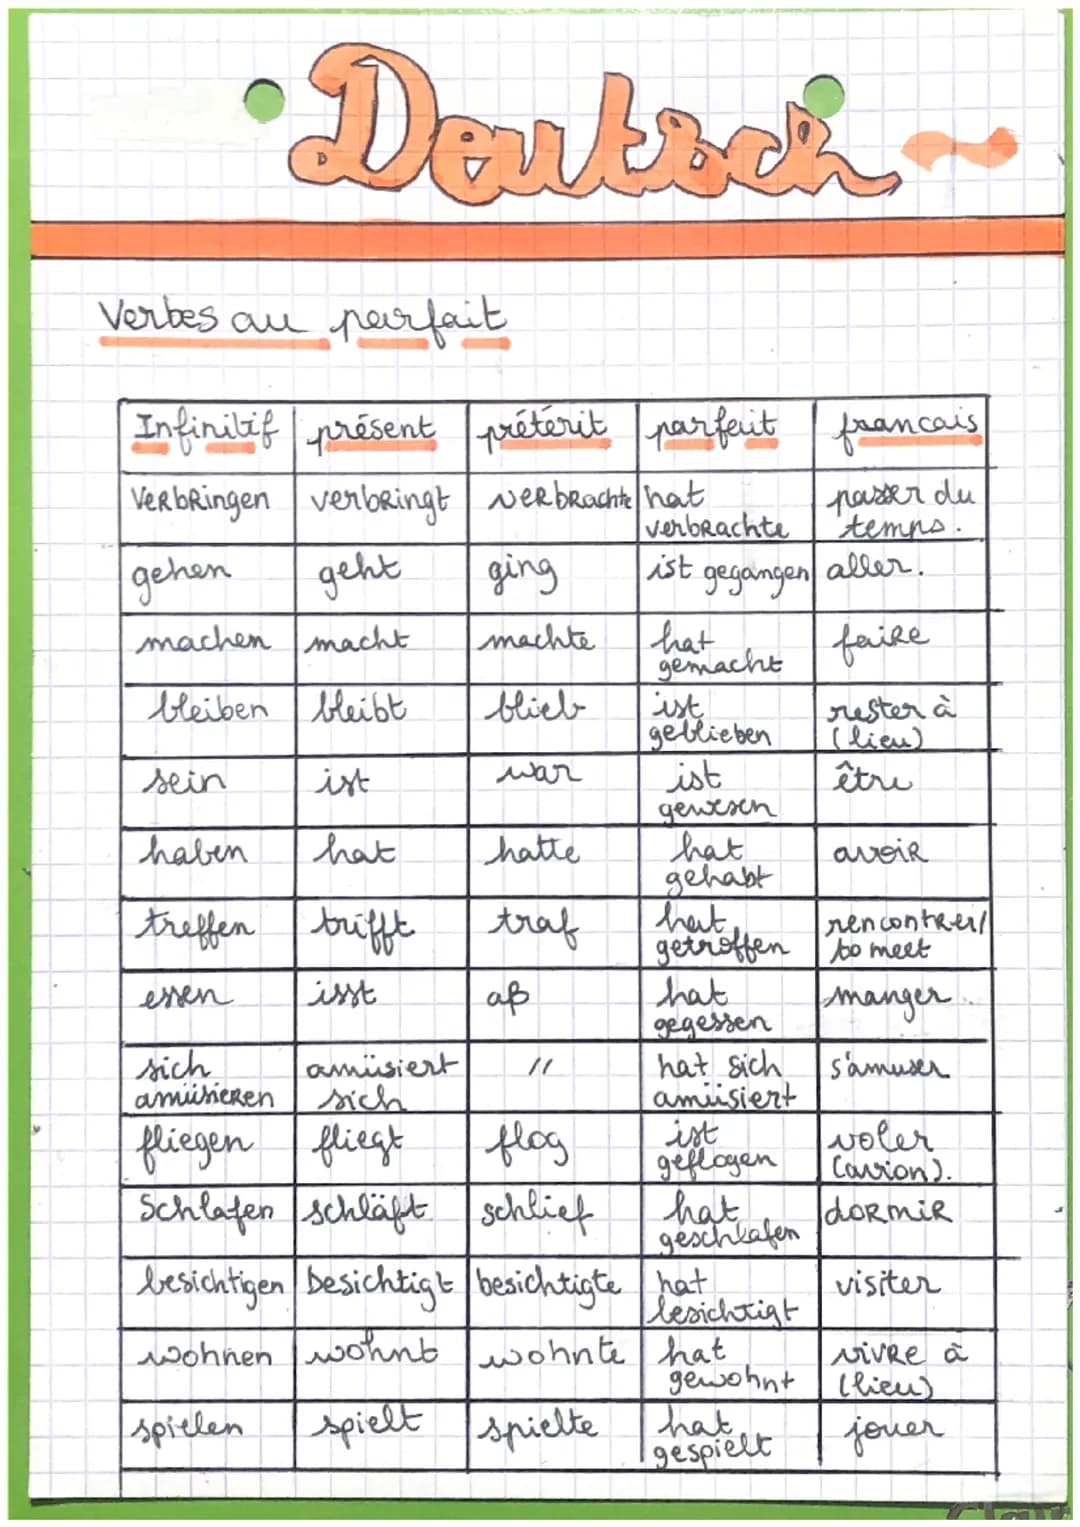 Deutsch
Verbes au parfait
Infinitif présent prétérit parfait francais
Verbringen verbringt verbrachte hat verbrachte passer du temps.
gehen geht ging ist gegangen aller.
machen macht machte hat gemacht faire
bleiben bleibt blieb ist geblieben rester à (lieu)
sein ist war ist gewesen être
haben hat hatte hat gehabt avoir
treffen trifft traf hat getroffen rencontrer/ to meet
essen isst aß hat gegessen manger
sich amüsieren amüsiert sich // hat sich amüsiert s'amuser
fliegen fliegt flog ist geflogen voler (avion).
Schlafen schläft schlief hat geschlafen dormir
besichtigen besichtigt besichtigte hat besichtigt visiter
wohnen wohnt wohnte hat gewohnt vivre à (lieu)
spielen spielt spielte hat gespielt jouer